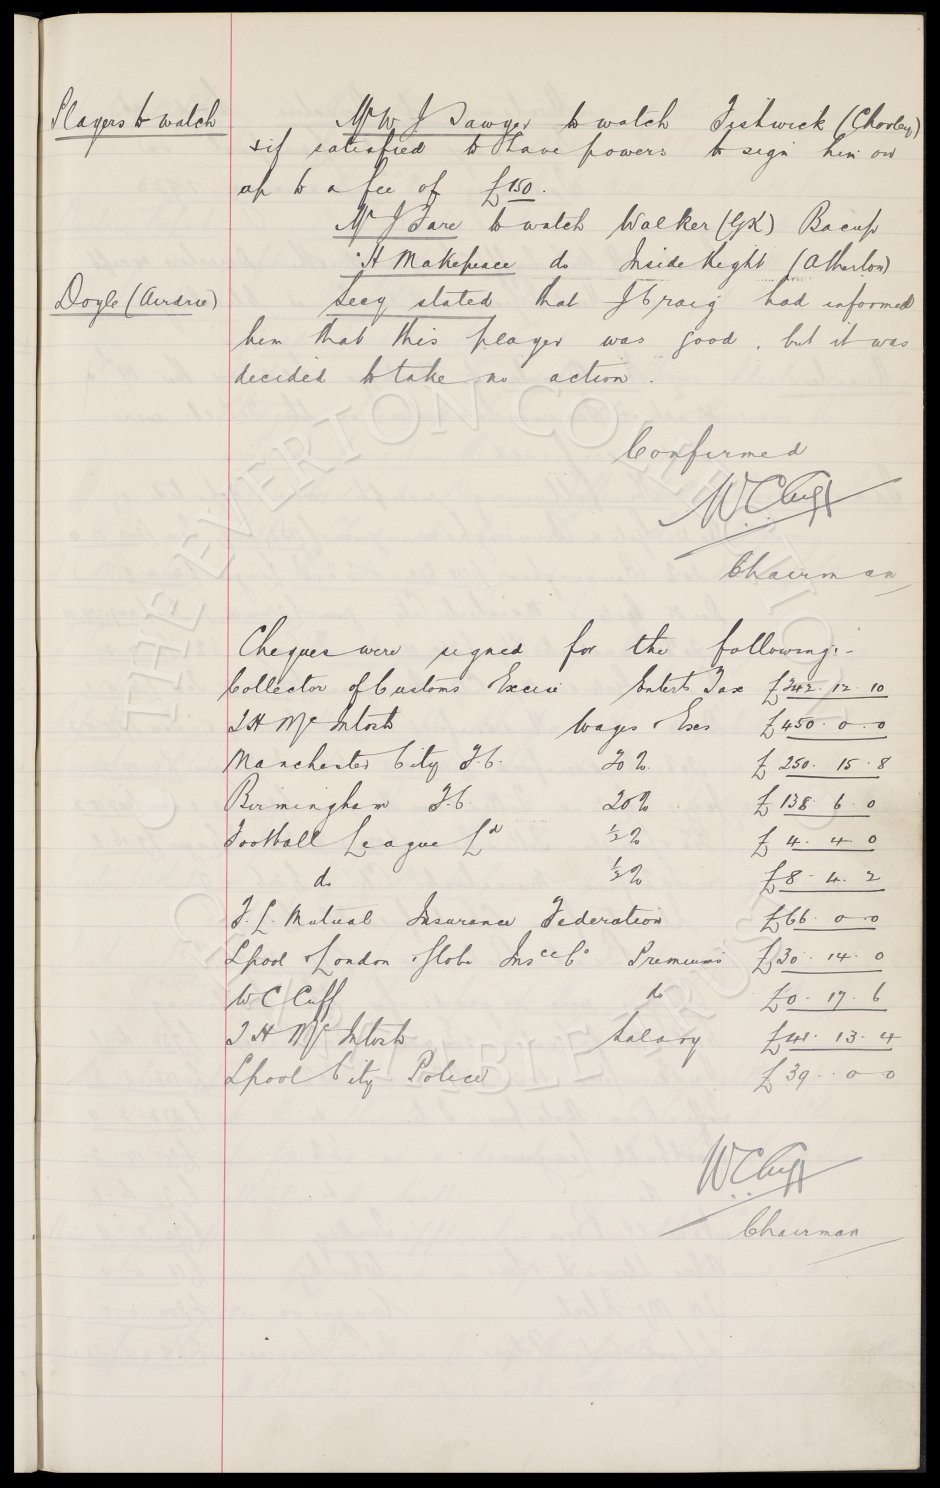 Players to watch
Mr W J Sawyer to watch Fishwick (Chorley)
& if satisfied to have powers to sign him on
up to a fee of £150.
Mr J Fare to watch Walker (GK) Bacup
" H Makepeace do Inside Right (Atherton)
Doyle (Airdrie)
Secy stated that J Craig had informed
him that this player was good, but it was
decided to take no action.
Confirmed
W C Cuff
Chairman
Cheques were signed for the following:-
Collector of Customs Excise Enterts Tax £342. 12. 10
T H McIntosh Wages & Exs £450. 0. 0
Manchester City F.C. 20% £250. 15. 8
Birmingham F.C. 20% £138. 6. 0
Football League Ld ½% £4. 4. 0
do ½% £8. 4. 2
F. L. Mutual Insurance Federation £66. 0. 0
Lpool & London & Globe Insce Co Premiums £30. 14. 0
W C Cuff do £0. 17. 6
T H McIntosh Salary £41. 13. 4
Lpool City Police £39. 0. 0
W C Cuff
Chairman
THE EVERTON COLLECTION
CHARITABLE TRUST